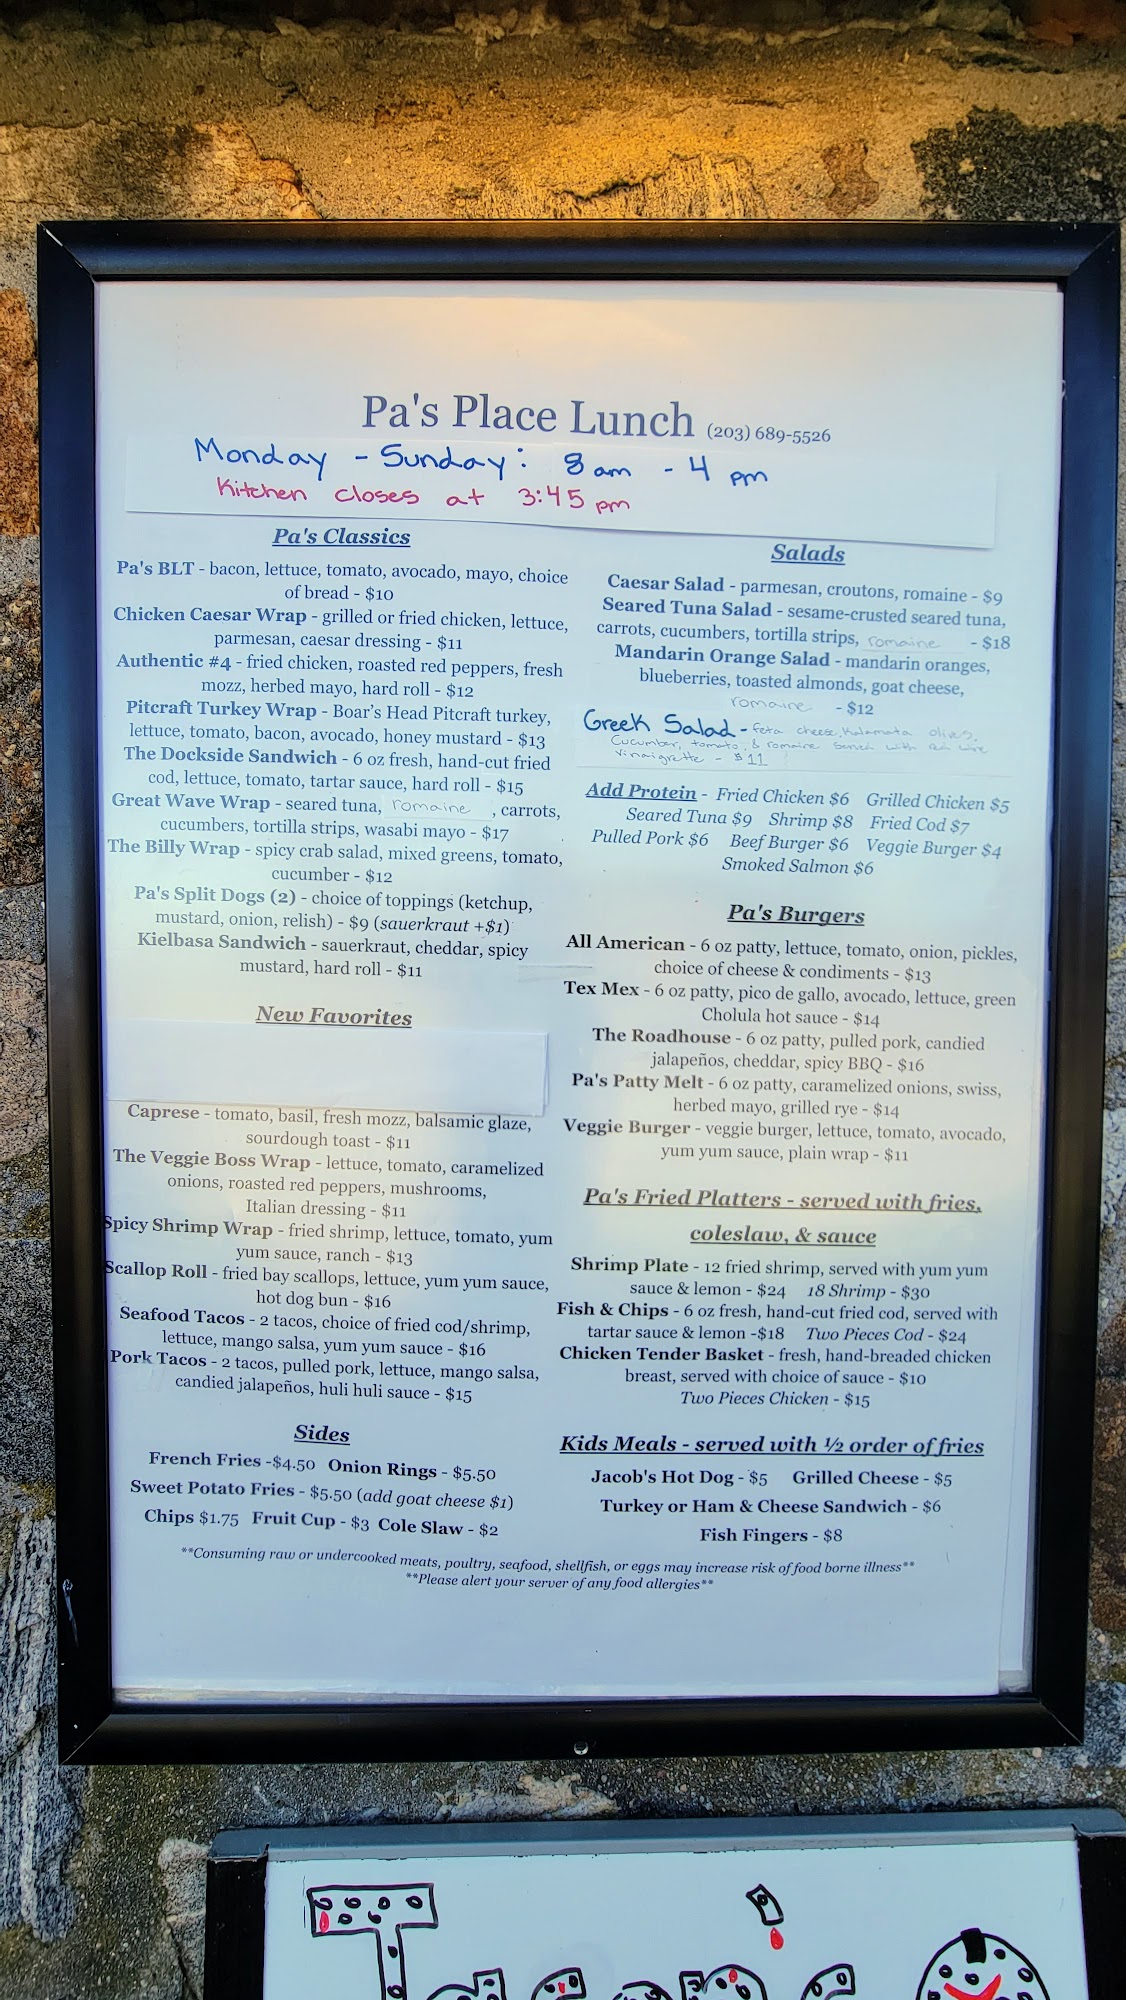 Pa's Place Lunch (203) 689-5526
Monday - Sunday: 8 am - 4 pm
Kitchen closes at 3:45 pm
Pa's Classics
Pa's BLT - bacon, lettuce, tomato, avocado, mayo, choice
of bread - $10
Chicken Caesar Wrap - grilled or fried chicken, lettuce,
parmesan, caesar dressing - $11
Authentic #4 - fried chicken, roasted red peppers, fresh
mozz, herbed mayo, hard roll - $12
Pitcraft Turkey Wrap - Boar's Head Pitcraft turkey,
lettuce, tomato, bacon, avocado, honey mustard - $13
The Dockside Sandwich - 6 oz fresh, hand-cut fried
cod, lettuce, tomato, tartar sauce, hard roll - $15
Great Wave Wrap - seared tuna, romaine, carrots,
cucumbers, tortilla strips, wasabi mayo - $17
The Billy Wrap - spicy crab salad, mixed greens, tomato,
cucumber - $12
Pa's Split Dogs (2) - choice of toppings (ketchup,
mustard, onion, relish) - $9 (sauerkraut +$1)
Kielbasa Sandwich - sauerkraut, cheddar, spicy
mustard, hard roll - $11
New Favorites
Caprese - tomato, basil, fresh mozz, balsamic glaze,
sourdough toast - $11
The Veggie Boss Wrap - lettuce, tomato, caramelized
onions, roasted red peppers, mushrooms,
Italian dressing - $11
Spicy Shrimp Wrap - fried shrimp, lettuce, tomato, yum
yum sauce, ranch - $13
Scallop Roll - fried bay scallops, lettuce, yum yum sauce,
hot dog bun - $16
Seafood Tacos - 2 tacos, choice of fried cod/shrimp,
lettuce, mango salsa, yum yum sauce - $16
Pork Tacos - 2 tacos, pulled pork, lettuce, mango salsa,
candied jalapeños, huli huli sauce - $15
Sides
French Fries -$4.50 Onion Rings - $5.50
Sweet Potato Fries - $5.50 (add goat cheese $1)
Chips $1.75 Fruit Cup - $3 Cole Slaw - $2
Salads
Caesar Salad - parmesan, croutons, romaine - $9
Seared Tuna Salad - sesame-crusted seared tuna,
carrots, cucumbers, tortilla strips, romaine - $18
Mandarin Orange Salad - mandarin oranges,
blueberries, toasted almonds, goat cheese,
romaine - $12
Greek Salad - feta cheese, Kalamata olives,
Cucumber, tomato, & romaine served with red wine
vinaigrette - $11
Add Protein - Fried Chicken $6 Grilled Chicken $5
Seared Tuna $9 Shrimp $8 Fried Cod $7
Pulled Pork $6 Beef Burger $6 Veggie Burger $4
Smoked Salmon $6
Pa's Burgers
All American - 6 oz patty, lettuce, tomato, onion, pickles,
choice of cheese & condiments - $13
Tex Mex - 6 oz patty, pico de gallo, avocado, lettuce, green
Cholula hot sauce - $14
The Roadhouse - 6 oz patty, pulled pork, candied
jalapeños, cheddar, spicy BBQ - $16
Pa's Patty Melt - 6 oz patty, caramelized onions, swiss,
herbed mayo, grilled rye - $14
Veggie Burger - veggie burger, lettuce, tomato, avocado,
yum yum sauce, plain wrap - $11
Pa's Fried Platters - served with fries,
coleslaw, & sauce
Shrimp Plate - 12 fried shrimp, served with yum yum
sauce & lemon - $24 18 Shrimp - $30
Fish & Chips - 6 oz fresh, hand-cut fried cod, served with
tartar sauce & lemon -$18 Two Pieces Cod - $24
Chicken Tender Basket - fresh, hand-breaded chicken
breast, served with choice of sauce - $10
Two Pieces Chicken - $15
Kids Meals - served with ½ order of fries
Jacob's Hot Dog - $5 Grilled Cheese - $5
Turkey or Ham & Cheese Sandwich - $6
Fish Fingers - $8
**Consuming raw or undercooked meats, poultry, seafood, shellfish, or eggs may increase risk of food borne illness**
**Please alert your server of any food allergies**